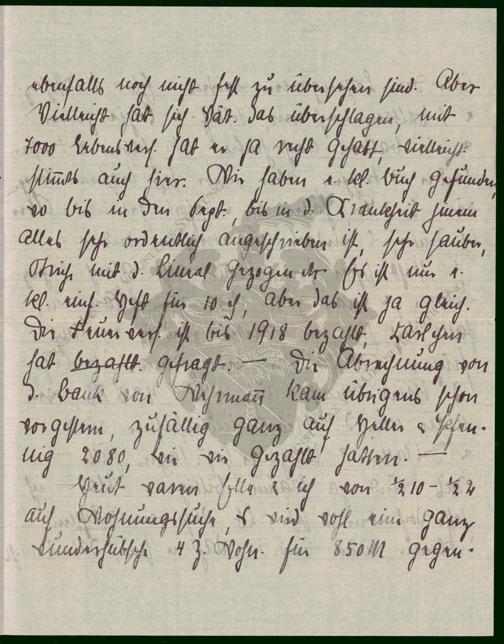 ebenfalls noch nicht fest zu übersehen sind. Aber
Vielleicht hat sich Vat. das überschlagen, mit
7000 Lebensvers. hat er ja recht gehabt, vielleicht
stimmts auch hier. Wir haben e. kl. Buch gefunden,
wo bis in den Sept. bis in d. Krankheit hinein
alles sehr ordentlich angeschrieben ist, sehr sauber,
Striche mit d. Lineal gezogen etc. Es ist nur e.
kl. einf. Heft für 10 ₰, aber das ist ja gleich.
Die Feuervers. ist bis 1918 bezahlt, Karlchen
hat bezahlt. gefragt. — Die Abrechnung von
d. Bank von Wehrmann kam übrigens schon
vorgestern, zufällig ganz auf Heller & Pfen-
nig 2080, wie wir gezahlt hatten. —
Heut waren & ich von ½10 - ½2
auf Wohnungssuche, & wird wohl eine ganz
wunderhübsche 4 Z. Wohn. für 850 M gegen-